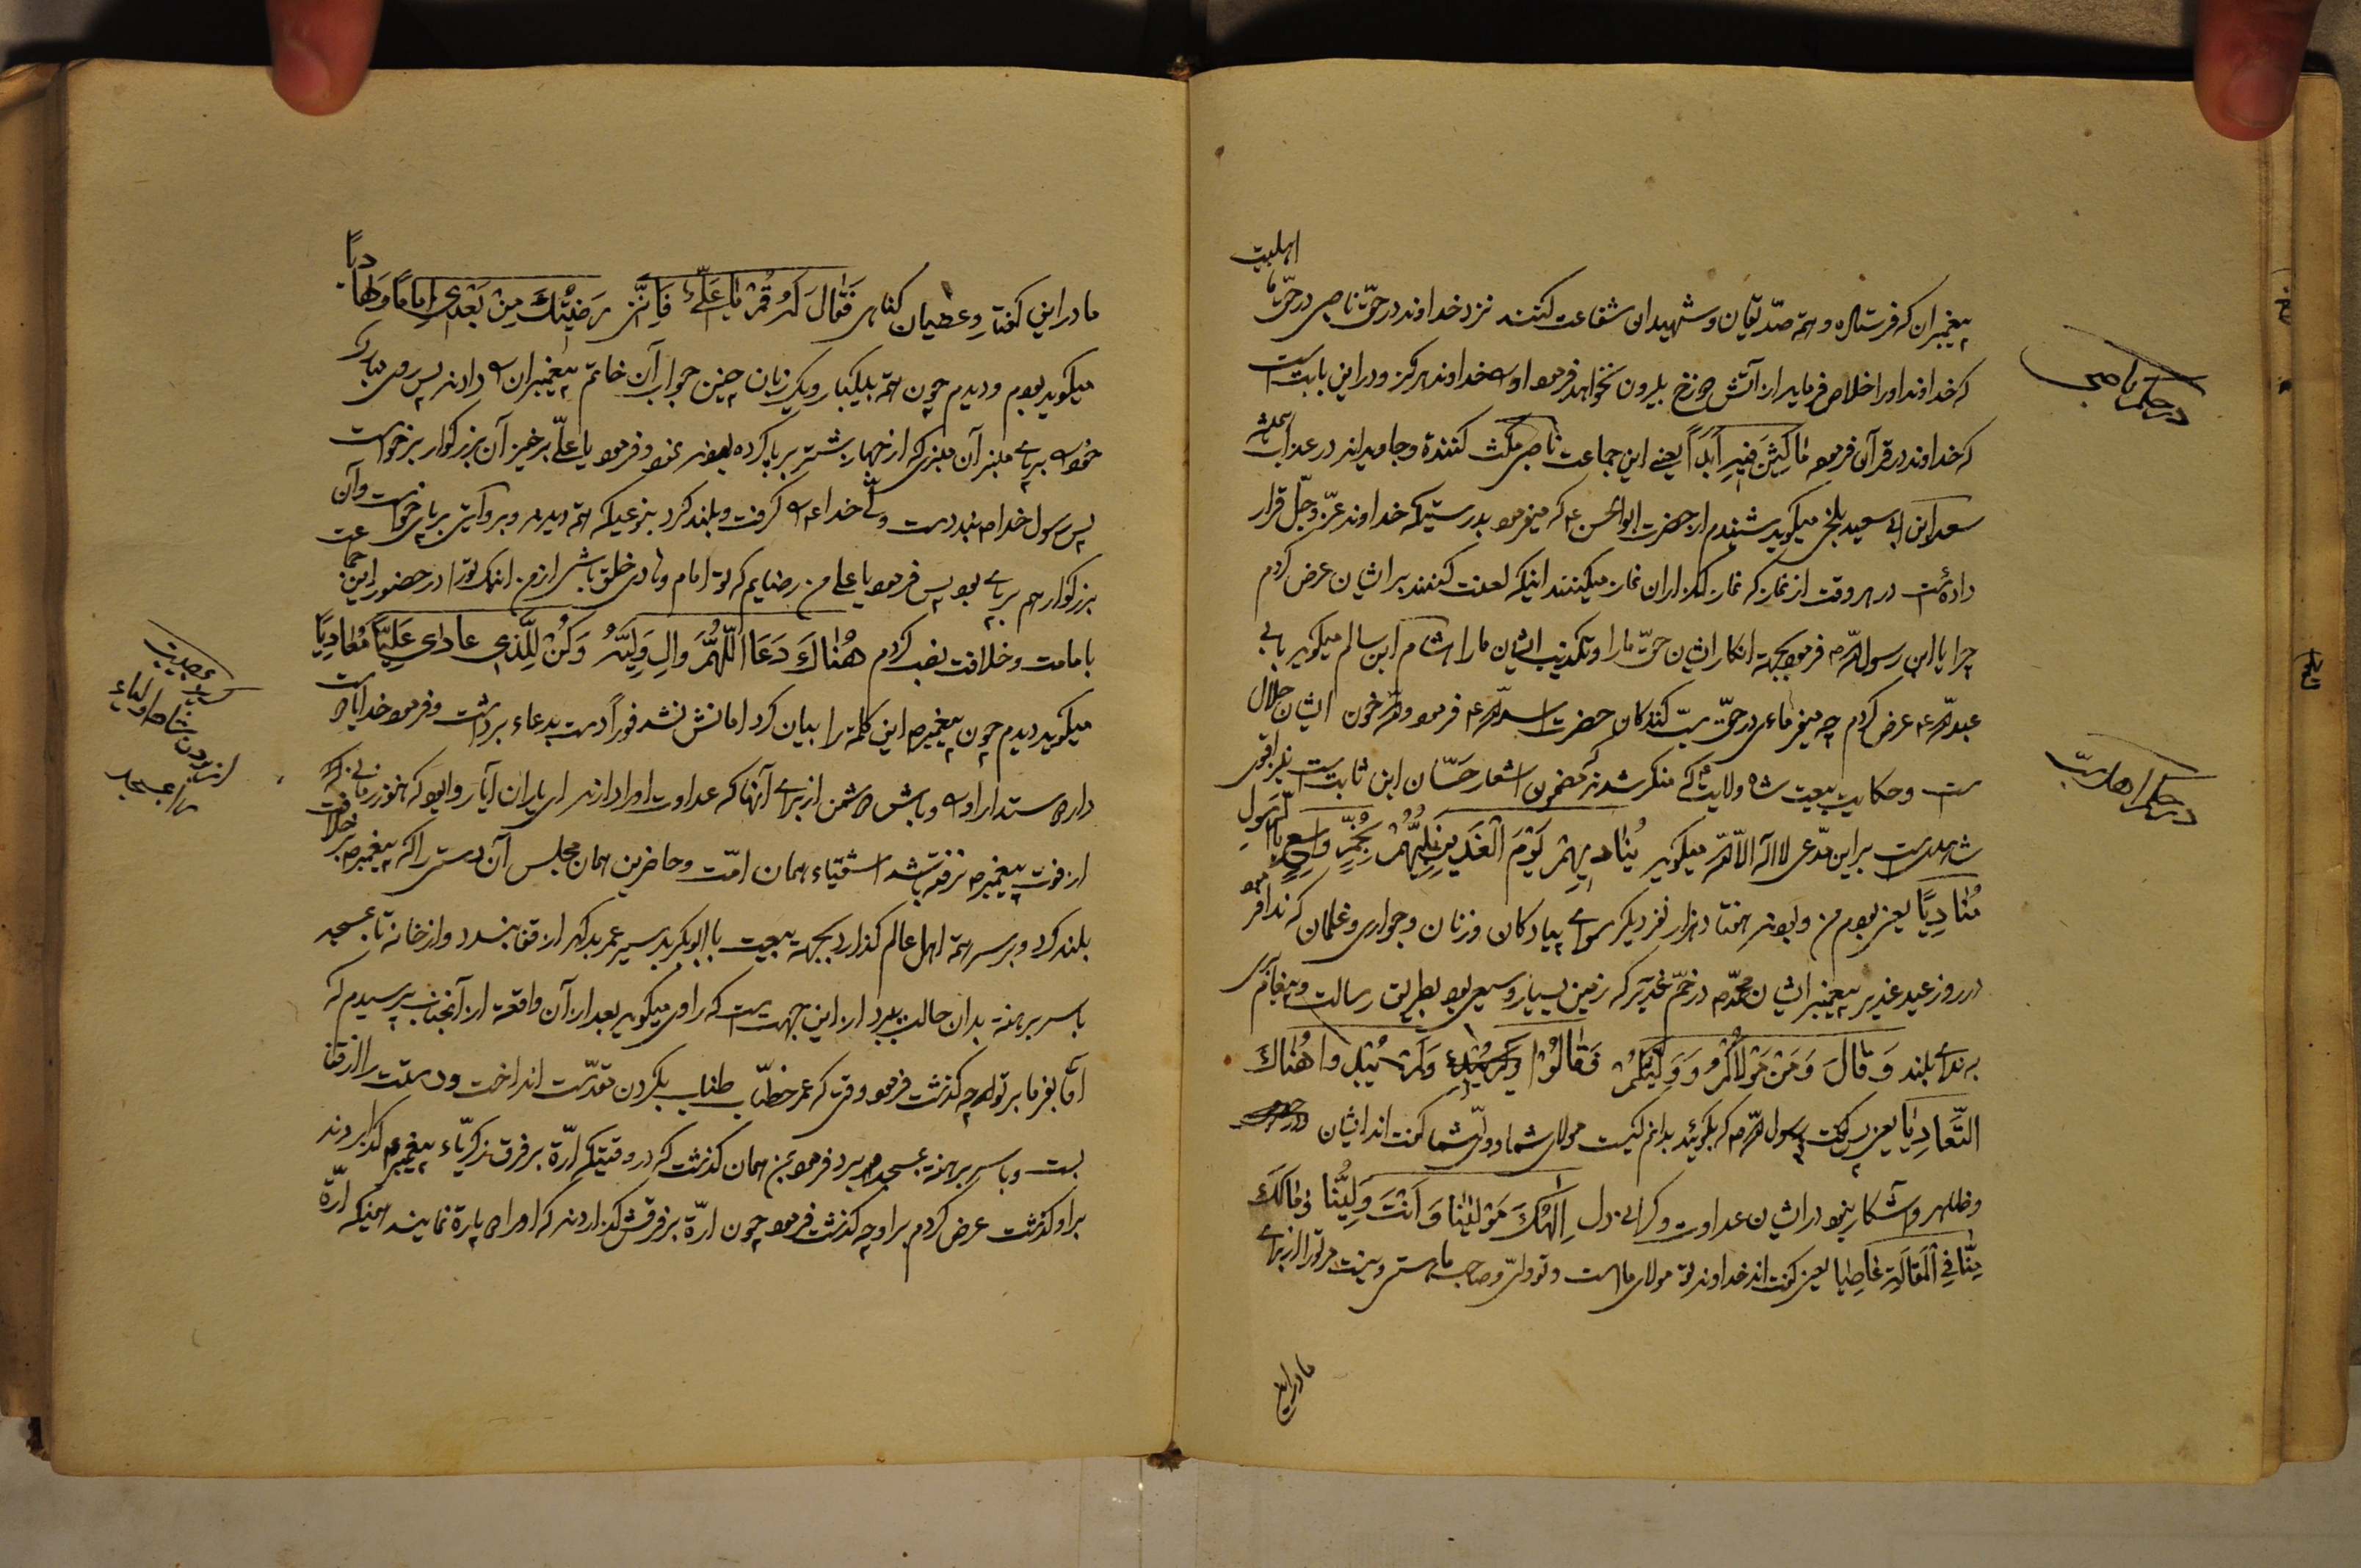 اهلبیت
پیغمبران که فرستاده و همه صدّیقان و شهیدان شفاعت کنند نزد خداوند در حقّ ناصبی در حقّ ما
که خداوند او را خلاص فرماید از آتش دوزخ بیرون نخواهد فرمود او را خداوند هرگز و در این بابت است
که خداوند در قرآن فرموده مٰاکِثِینَ فیهِ اَبَداً یعنی این جماعت ناصبی مکث کننده و جاویدانند در عذاب
سعد ابن ابی سعید بلخی میگوید شنیدم از حضرت ابوالحسن ع که میفرمود بدرستیکه خداوند عزّ و جلّ قرار
داده است در هر وقت از نماز که نماز گذاران نماز میکنند اینکه لعنت کنند بر ایشان عرض کردم
چرا یا ابن رسول الله ص فرمود بجهة انکار ایشان حقّ ما را و تکذیب ایشان ما را هشام ابن سالم میگوید بابی
عبدالله ع عرض کردم چه میفرمائی در حقّ سبّ کنندگان حضرت اسدالله ع فرمود والله خون ایشان حلال
است و حکایت بیعت شاه ولایت که منکر شدند مضمون اشعار حسّان ابن ثابت است
شاهد است بر این مدّعی لااله الاالله میگوید یُنٰادیهِمْ یَوْمَ الْغَدیرِ نَبِیُّهُمْ بِخُمٍّ وَاسْمَعْ بِالرَّسُولِ
مُنٰادِیًا یعنی بودم من و بودند هفتاد هزار نفر دیگر سوای پیادگان و زنان و جواری و غلمان که ندا فرمود
در روز عید غدیر پیغمبر ایشان محمّد ص در خمّ غدیر که زمین بسیار وسیعی بود بطریق رسالت و پیغام آوری
به ندای بلند وَقٰالَ وَمَنْ مَوْلاٰکُمْ وَوَلِیُّکُمْ فَقٰالُوْا وَلَمْ یُبْدوا هُنٰاکَ
التَّعٰادِیٰا یعنی پس گفت رسول الله ص که بگوئید بدانم کیست مولای شما و ولیّ شما گفتند ایشان
و ظاهر و آشکار ننمودند ایشان عداوت و گرانی دل اِلٰهُکَ مَوْلٰینٰا وَاَنْتَ وَلِیُّنٰا وَمٰالَکَ
مِنّٰا فِی الْمَقٰالَةِ عٰاصِیٰا یعنی گفتند خداوند تو مولای ما است و تو ولیّ و صاحب ما هستی و نیست مر تو را از برای
ما در این
در حکم ناصبی
در حکم اهل سبّ
ما در این گفتار و عصیان گناهی فَقٰالَ لَهُ قُمْ یٰا عَلِیُّ فَاِنَّنی رَضیتُکَ مِنْ بَعْدی اِمٰامًا وَهٰادیًا
میگوید بودم و دیدم چون همه بیکبار و یک زبان چنین جواب آن خاتم پیغمبران را دادند پس روی مبارک
خود را بر بالای منبر آن منبری که از جهاز شتر برپا کرده بودند نمود و فرمود یا علیّ برخیز آن بزرگوار برخواست
پس رسول خدا ص بند دست ولیّ خدا ع را گرفت و بلند کرد بنوعیکه همه دیدند و بروایتی برپای خواست و آن
بزرگوار هم برپای بود پس فرمود یا علی من رضایم که تو امام و هادی خلق باشی از من اینک تو را در حضور این جماعت
بامامت و خلافت نصب کردم هُنٰاکَ دَعَا اَللّٰهُمَّ وٰالِ وَلِیَّهُ وَکُنْ لِلَّذی عادٰی عَلِیًّا مُعٰادِیًا
میگوید دیدم چون پیغمبر ص این کلمه را بیان کرد امانش نشد فوراً دست بدعاء برداشت و فرمود خدایا دوست
دار دوستدار او را و باش دشمن از برای آنها که عداوت او را دارند ای یاران آیا روا بود که هنوز زمانی که
از فوت پیغمبر ص نرفته باشد اشقیاء همان امّت و حاضرین همان مجلس آن دستی را که پیغمبر ص بر خلافت
بلند کرد و بر سر همه اهل عالم گذارد بجهة بیعت با ابوبکر بد سیر عمر بد گهر از قفا ببندد و از خانه تا مسجد
با سر برهنه بدان حالت ببرد از این جهت است که راوی میگوید بعد از آن واقعه از آنجناب پرسیدم که
آقا بفرما بر تو چه گذشت فرمود وقتی که عمر خطّاب طناب بگردن مقدّست انداخت و دستت را از قفا
بست و با سر برهنه بمسجد میبرد فرمود بمن همان گذشت که در وقتیکه ارّه بر فرق زکریّاء پیغمبر ع گذاردند
بر او گذشت عرض کردم بر او چه گذشت فرمود چون ارّه بر فرقش گذاردند که او را دو پاره نمایند همینکه ارّه
مصیبت
شاه اولیاء
از بردن
را بمسجد